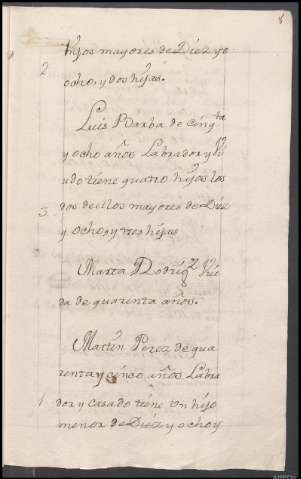 8
hijos mayores de Diez y
2
ocho, y dos hijas.
Luis Barba de cinq.ta
y ocho años Labrador y Viu
udo tiene quatro hijos los
dos de ellos mayores de Diez
3
y ocho, y tres hijas
Marta Rodrig.z Viu
da de quarenta años.
Martin Perez de qua
renta y cinco años Labra
1
dor y casado tiene Un hijo
menor de Diez y ocho y